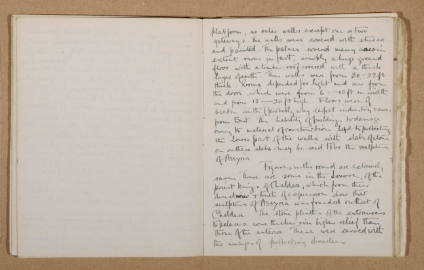 platform, no outer walls except one or two
gateways. The walls were covered with stucco
and painted. The palace covered many acres in
extent mostly in fact, simply a huge ground
floor with a timber roof covered with a thick
layer of earth. The walls were from 20-22 ft
thick. Rooms depended for light and air from
the door, which were from 6-10 ft in width
and from 15-20 ft high. Floors were of
beaten earth (probably why carpet industry came
from East. The liability of buildings to damage
owing to material of construction led to protecting
the lower part of the walls with slabs of stone
on outer slabs may be said to be the sculpture
of Assyria
Figures in the round are extremely
rare. There are some in the Louvre, of the
priest kings of Chaldea, which from their
and truth of expression show that
sculpture of Assyria was founded on that of
Chaldea. The stone plinths of the entrances
to palaces were thicker, in higher relief than
those of the interior. These were carved with
the images of protecting divinities